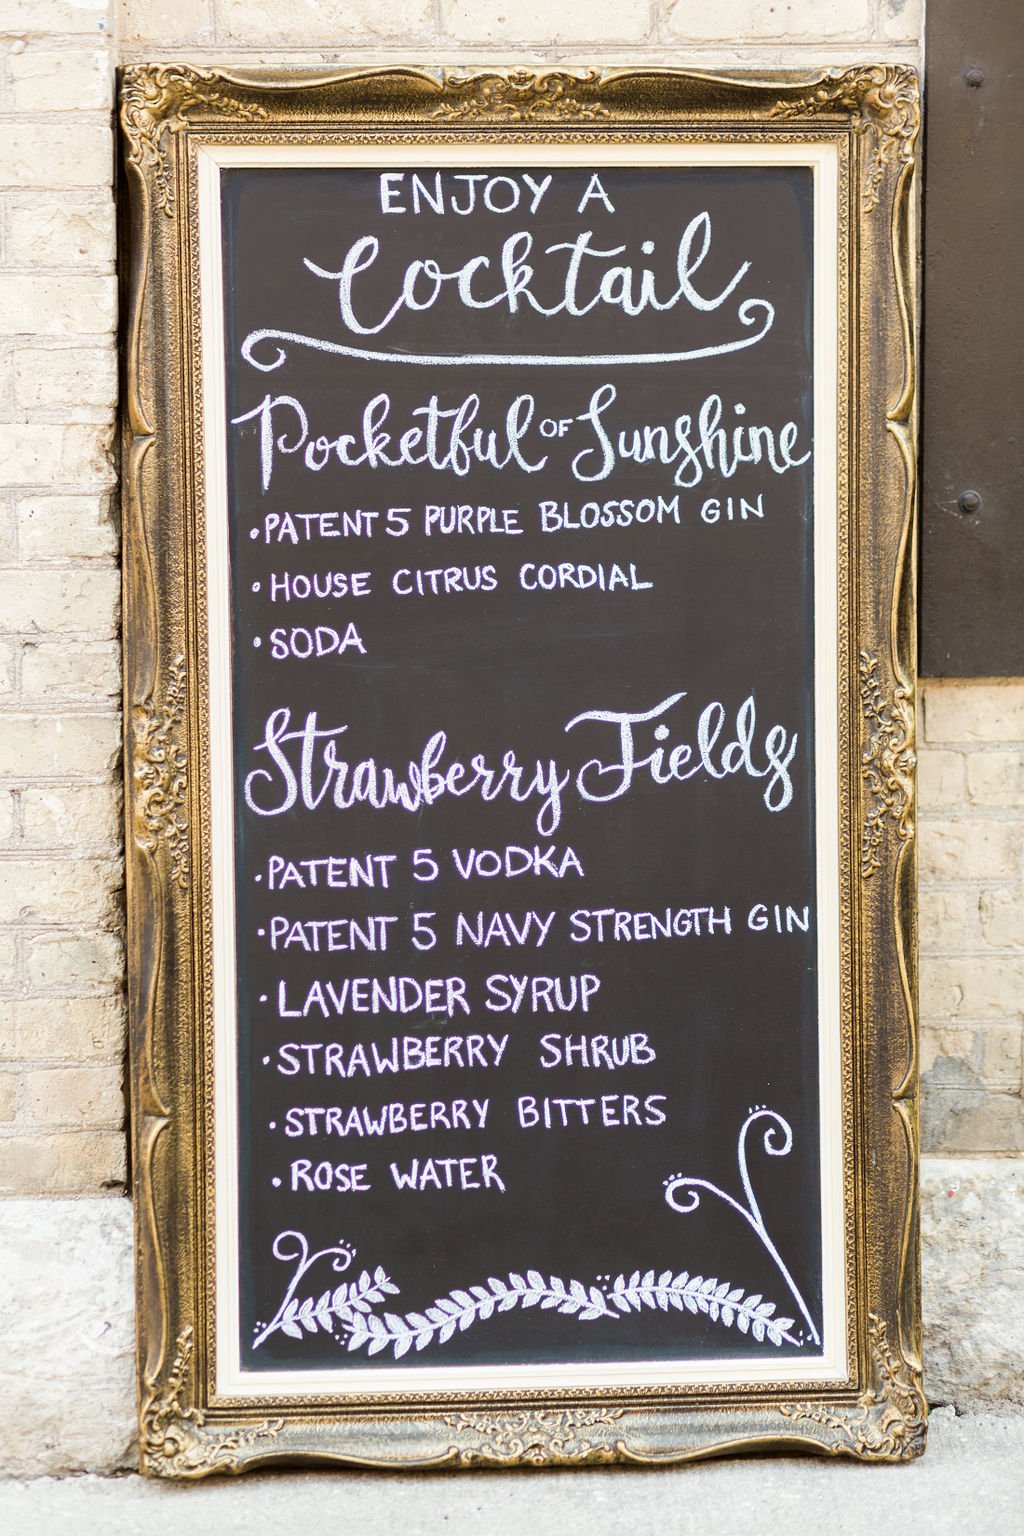 ENJOY A
Cocktail
Pocketful OF Sunshine
• PATENT 5 PURPLE BLOSSOM GIN
• HOUSE CITRUS CORDIAL
• SODA
Strawberry Fields
• PATENT 5 VODKA
• PATENT 5 NAVY STRENGTH GIN
• LAVENDER SYRUP
• STRAWBERRY SHRUB
• STRAWBERRY BITTERS
• ROSE WATER